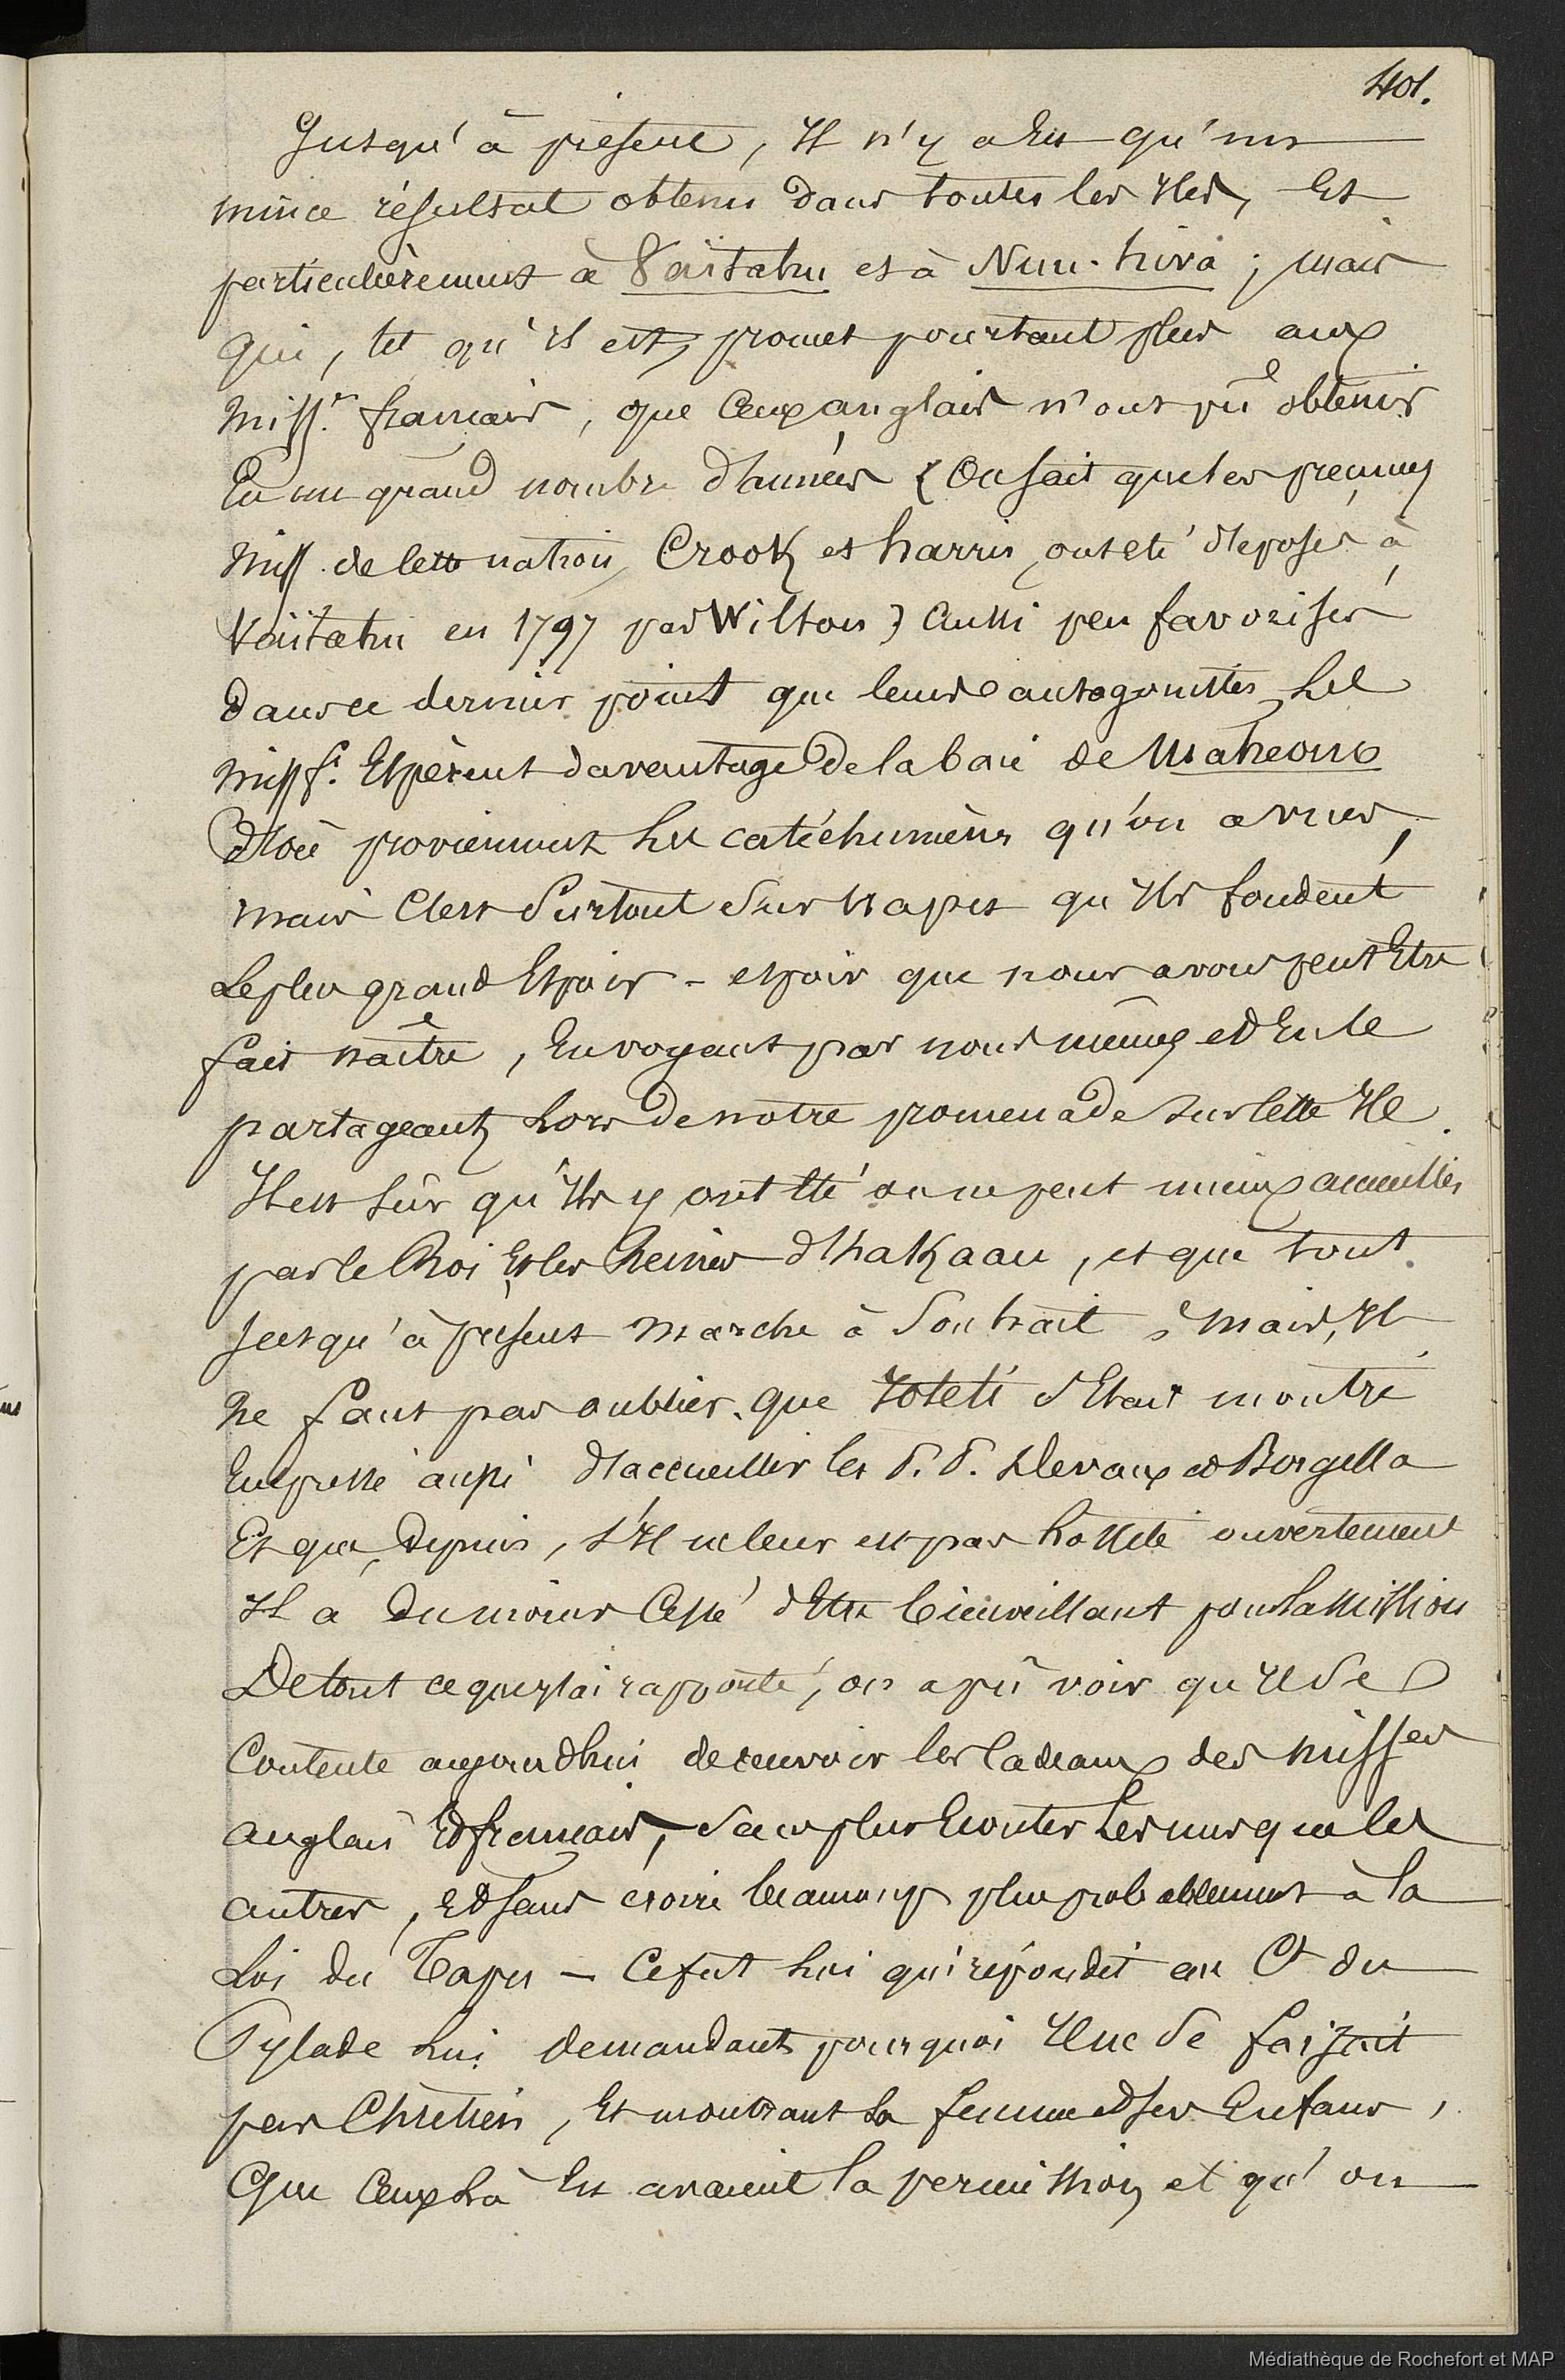 401.
Jusqu'à présent, Il n'y a Eu qu'un
mince résultat obtenu dans toutes les Iles, Et
particulièrement à Vaitahu et à Nuu-hiva ; mais
qui, tel qu'Il est, promet pourtant plus aux
Miss.rs français, que Ceux anglais n'ont pû obtenir
En un grand nombre d'années (On sait que les premiers
Miss. de cette nation, Crook et harris, ont été déposés à
Vaitahu en 1797 par Wilson) Aussi peu favorisés
dans ce dernier point que leurs antagonistes, les
Miss.f. Espèrent davantage de la baie de
d'où proviennent les catéchumènes qu'on a vus,
mais C'est Surtout Sur Uapu qu'Ils fondent
Le plus grand Espoir - espoir que nous avons peut Etre
fait naître, En voyant par nous mêmes et En le
partageant, Lors de notre promenade sur Cette Ile.
Il est sûr qu'Ils y ont été on ne peut mieux accueillis
par le Roi Et les Reines d'hakaau, et que tout
jusqu'à présent Marche à Souhait ; Mais, Il
ne faut pas oublier que Ioteté s'Etait montré
Empressé aussi d'accueillir les P.P. Devaux et Borgella
Et que, depuis, s'Il ne leur est pas hostile ouvertement
Il a du moins Cessé d'Etre bienveillant pour la Mission
De tout ce que j'ai rapporté, on a pû voir qu'Il Se
Contente aujourd'hui de recevoir les Cadeaux des Miss.es
anglais Et français, Sans plus Ecouter Les uns que les
autres, Et Sans croire beaucoup plus probablement à la
Loi du Tapu — Ce fut lui qui répondit au Ct du
Pylade Lui demandant pourquoi Il ne Se faisait
pas Chrétien, Et montrant Sa femme et Ses Enfans,
Que Ceux Là En avaient la permission, et qu'on
Médiathèque de Rochefort et MAP